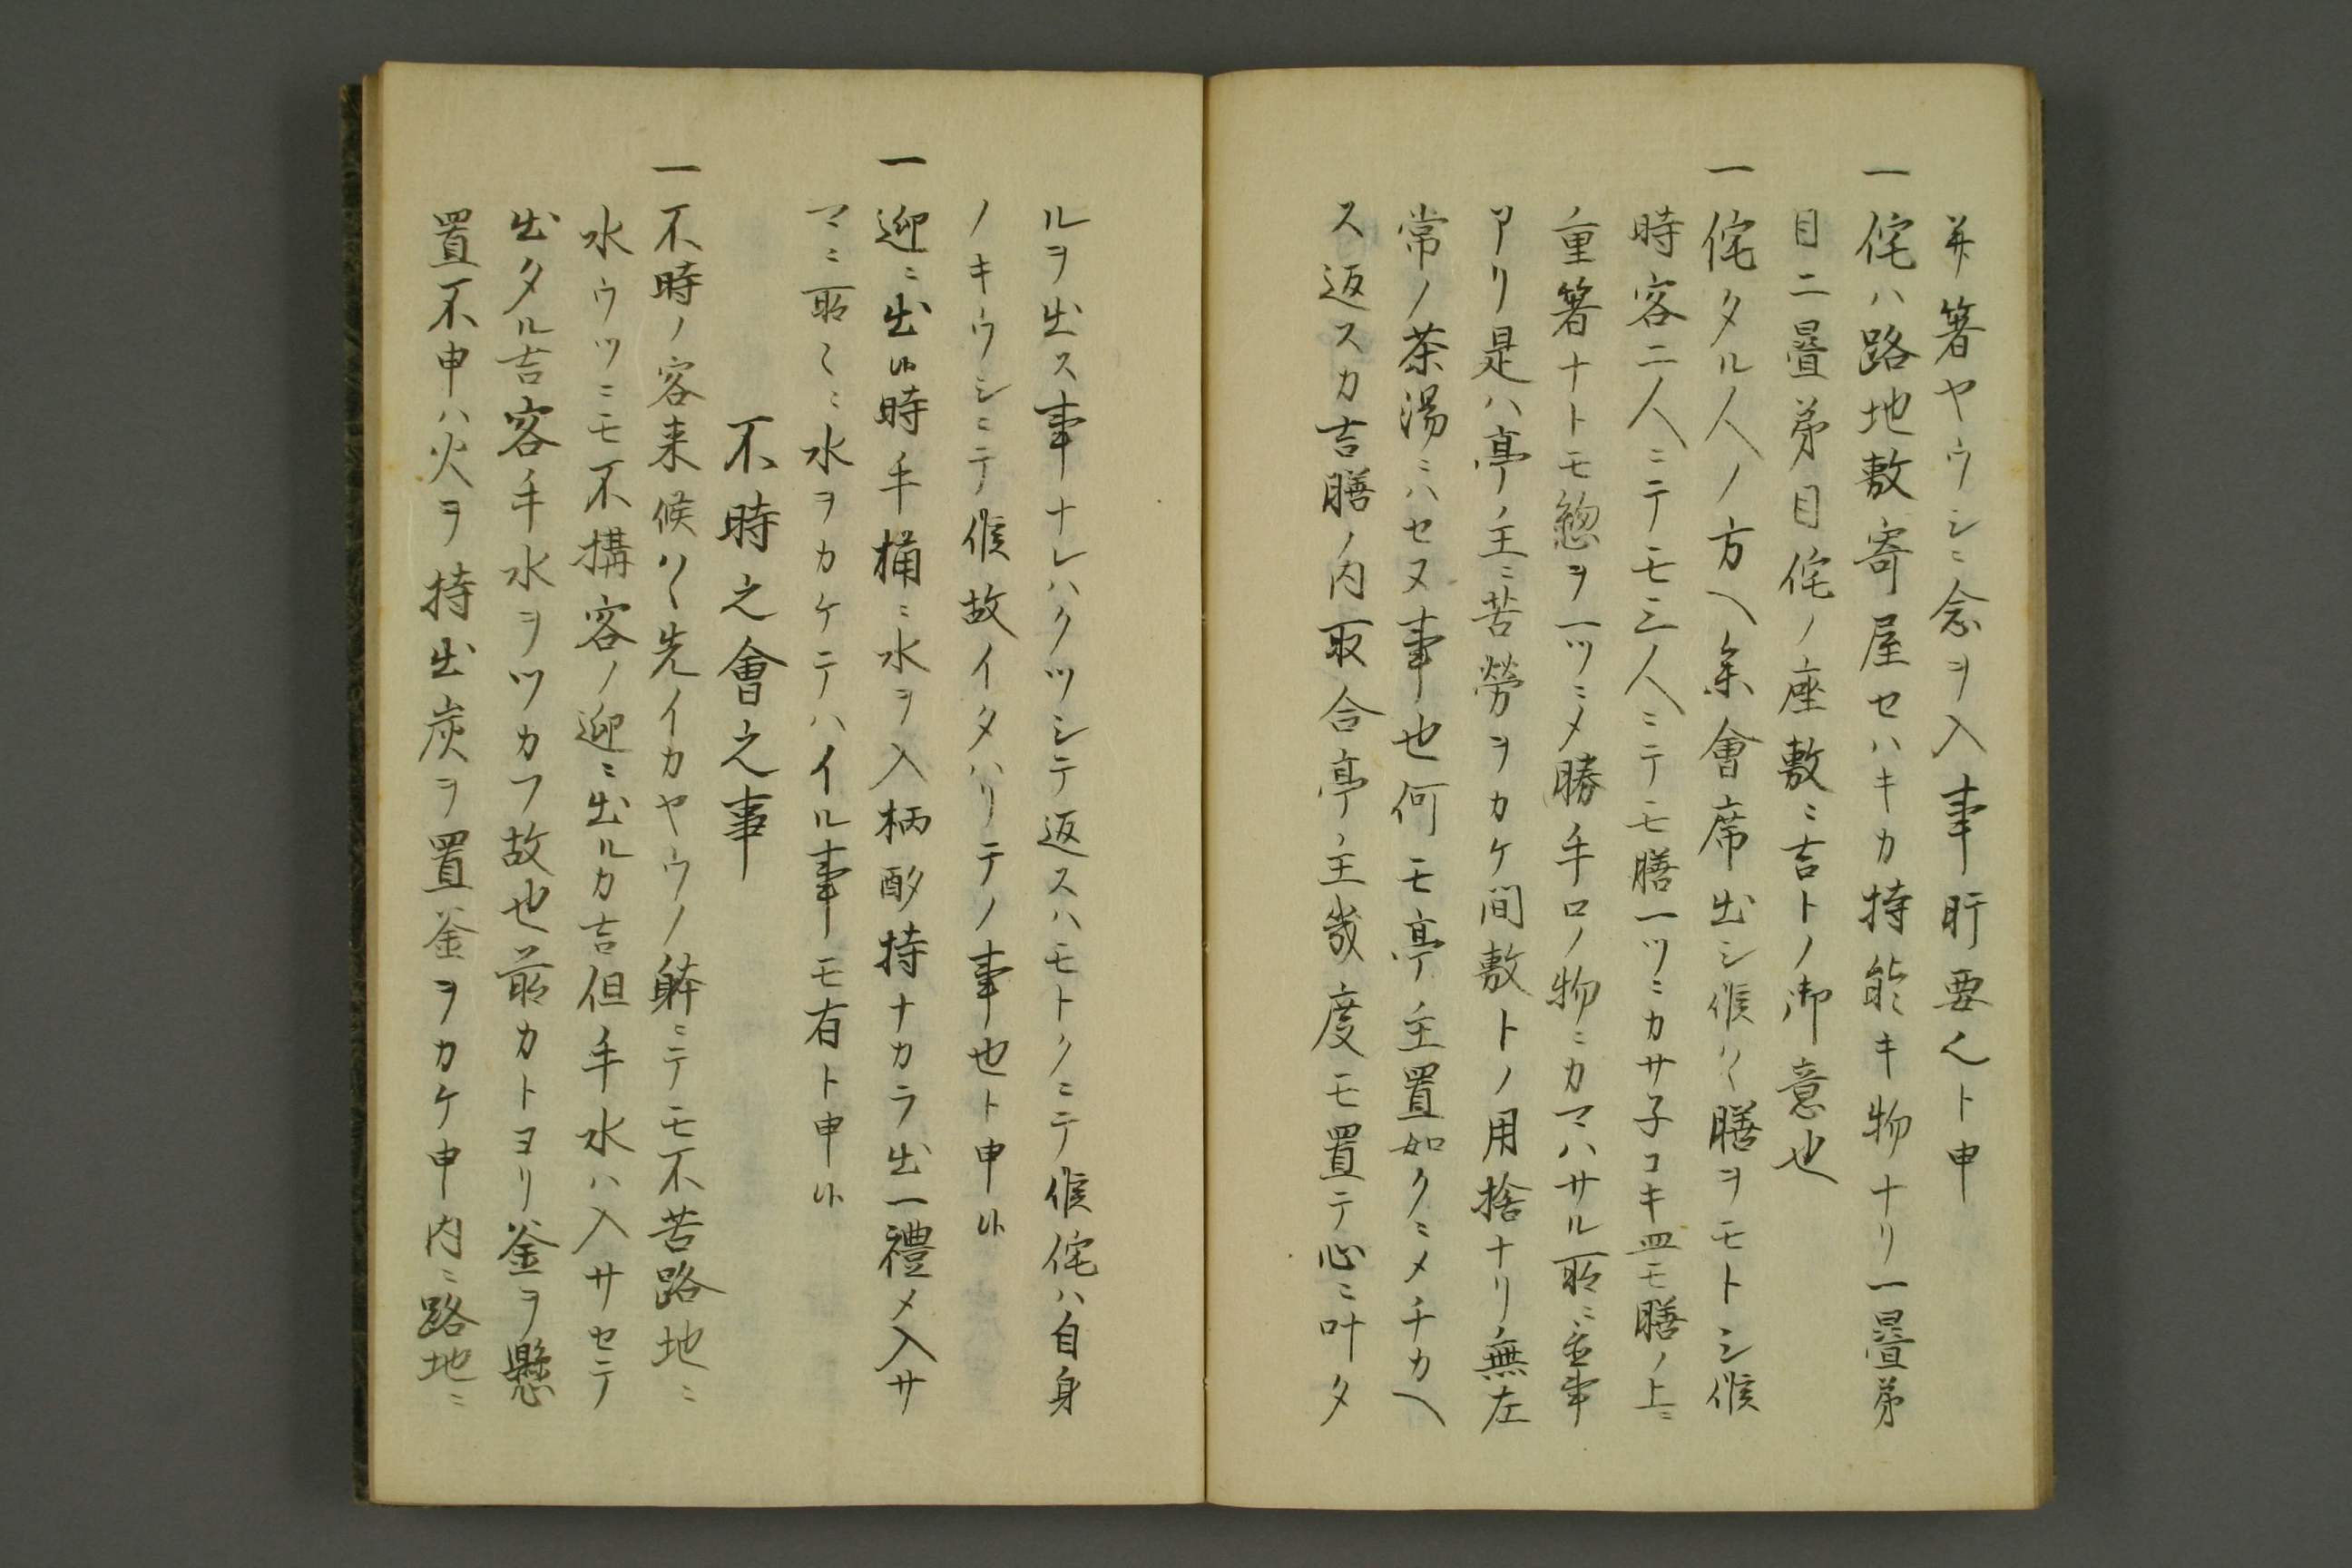 并箸ヤウシニ念ヲ入事肝要也ト申
一侘ハ路地敷寄屋セハキカ持能キ物ナリ一疊弟
目二疊弟目侘ノ座敷ニ吉トノ御意也
一侘タル人ノ方ヘ糸會席出シ候ハヽ膳ヲモトシ候
時客二人ニテモ三人ニテモ膳一ツニカサ子コキ皿モ膳ノ上ニ
重箸ナトモ惣ヲ一ツニメ勝手口ノ物ニカマハサル所ニ置事
アリ是ハ亭主ニ苦勞ヲカケ間敷トノ用捨ナリ無左
常ノ茶湯ニハセヌ事也何モ亭主置如クニメチカヘ
ス返スカ吉膳ノ内取合亭主幾度モ置テ心ニ叶タ
ルヲ出ス事ナレハクツシテ返スハモトクニテ候侘ハ自身
ノキウシニテ候故イタハリテノ事也ト申候
一迎ニ出候時手桶ニ水ヲ入柄酌持ナカラ出一禮メ入サ
マニ所〱ニ水ヲカケテハイル事モ有ト申候
不時之會之事
一不時ノ客来候ハヽ先イカヤウノ躰ニテモ不苦路地ニ
水ウツニモ不構客ノ迎ニ出ルカ吉但手水ハ入サセテ
出タル吉客手水ヲツカフ故也前カトヨリ釜ヲ懸
置不申ハ火ヲ持出炭ヲ置釜ヲカケ申内ニ路地ニ